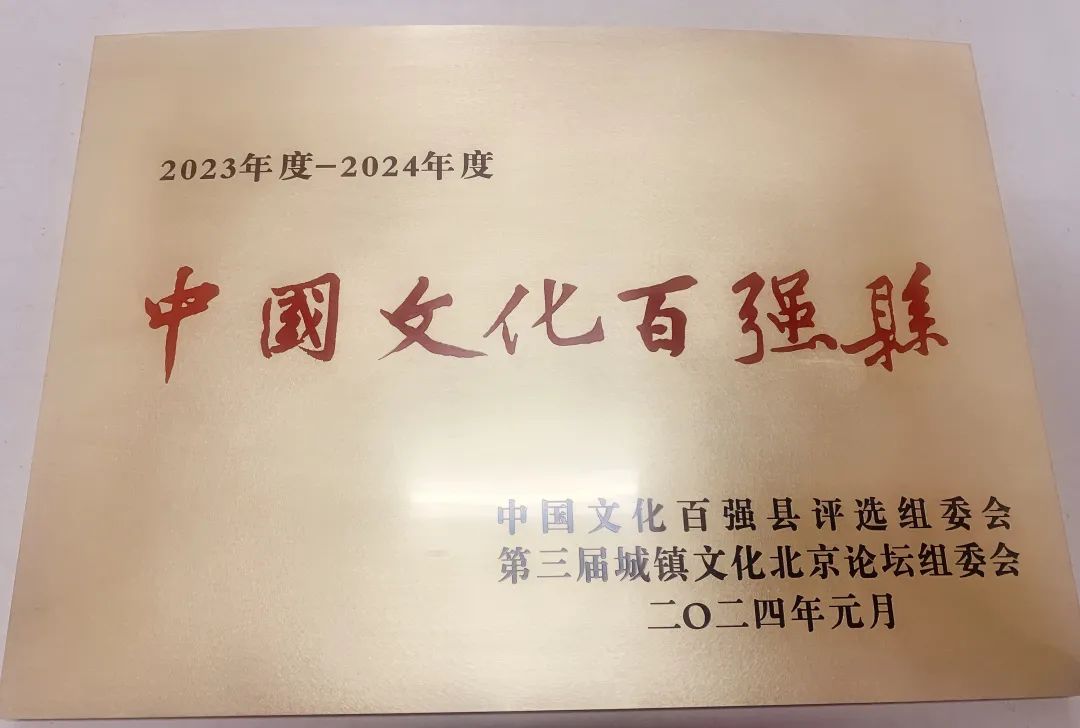 2023年度-2024年度
中國文化百强縣
中国文化百强县评选组委会
第三届城镇文化北京论坛组委会
二〇二四年元月